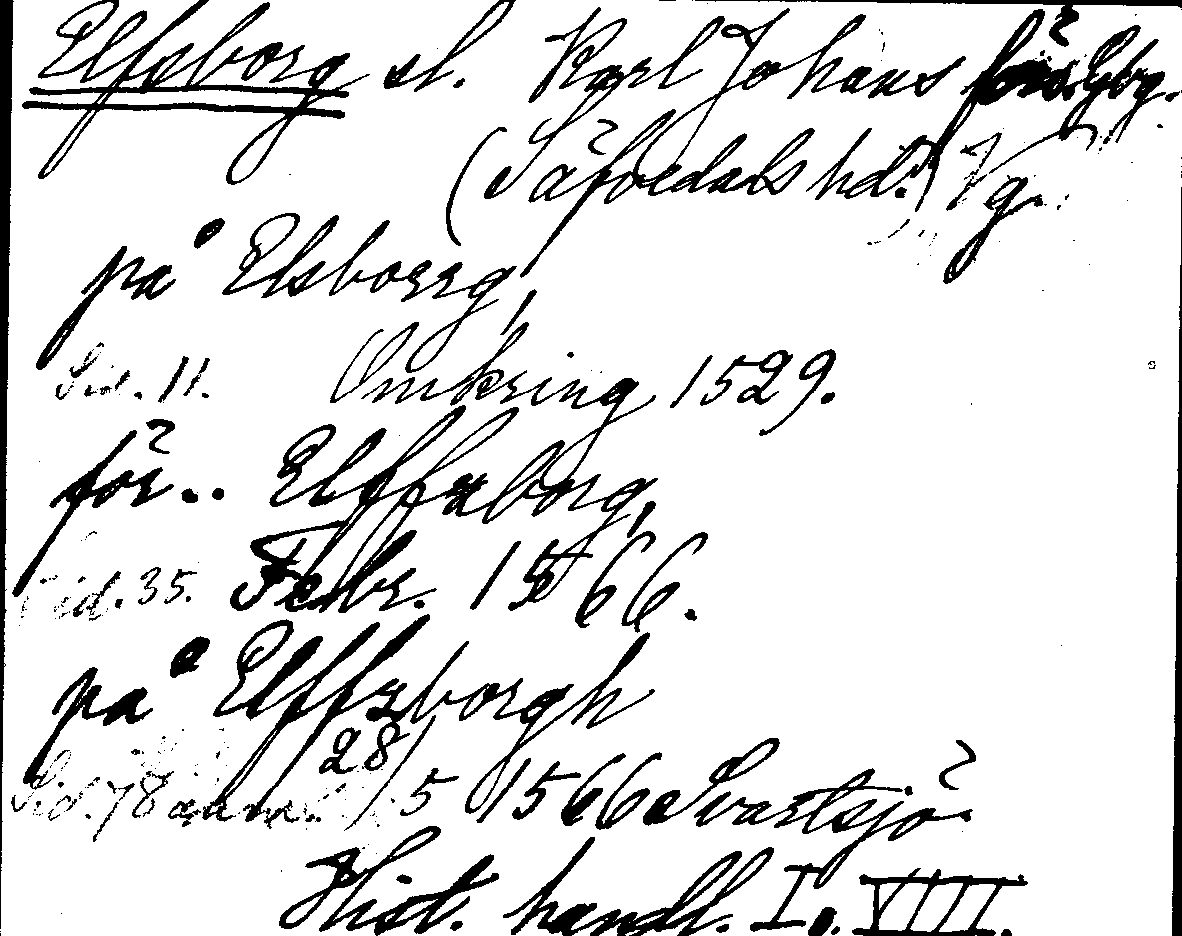 Elfsborg sl. Karl Johans förs. Gbg.
(Säfvedals hd.) Vg.
på Elsborrg,
Sid. 11. Omkring 1529.
för.. Elffzborg,
Sid. 35. Febr. 1566.
på Elffzborgh
Sid. 78 anm. 28/5 1566 Svartsjö.
Hist. handl. I o. VIII.